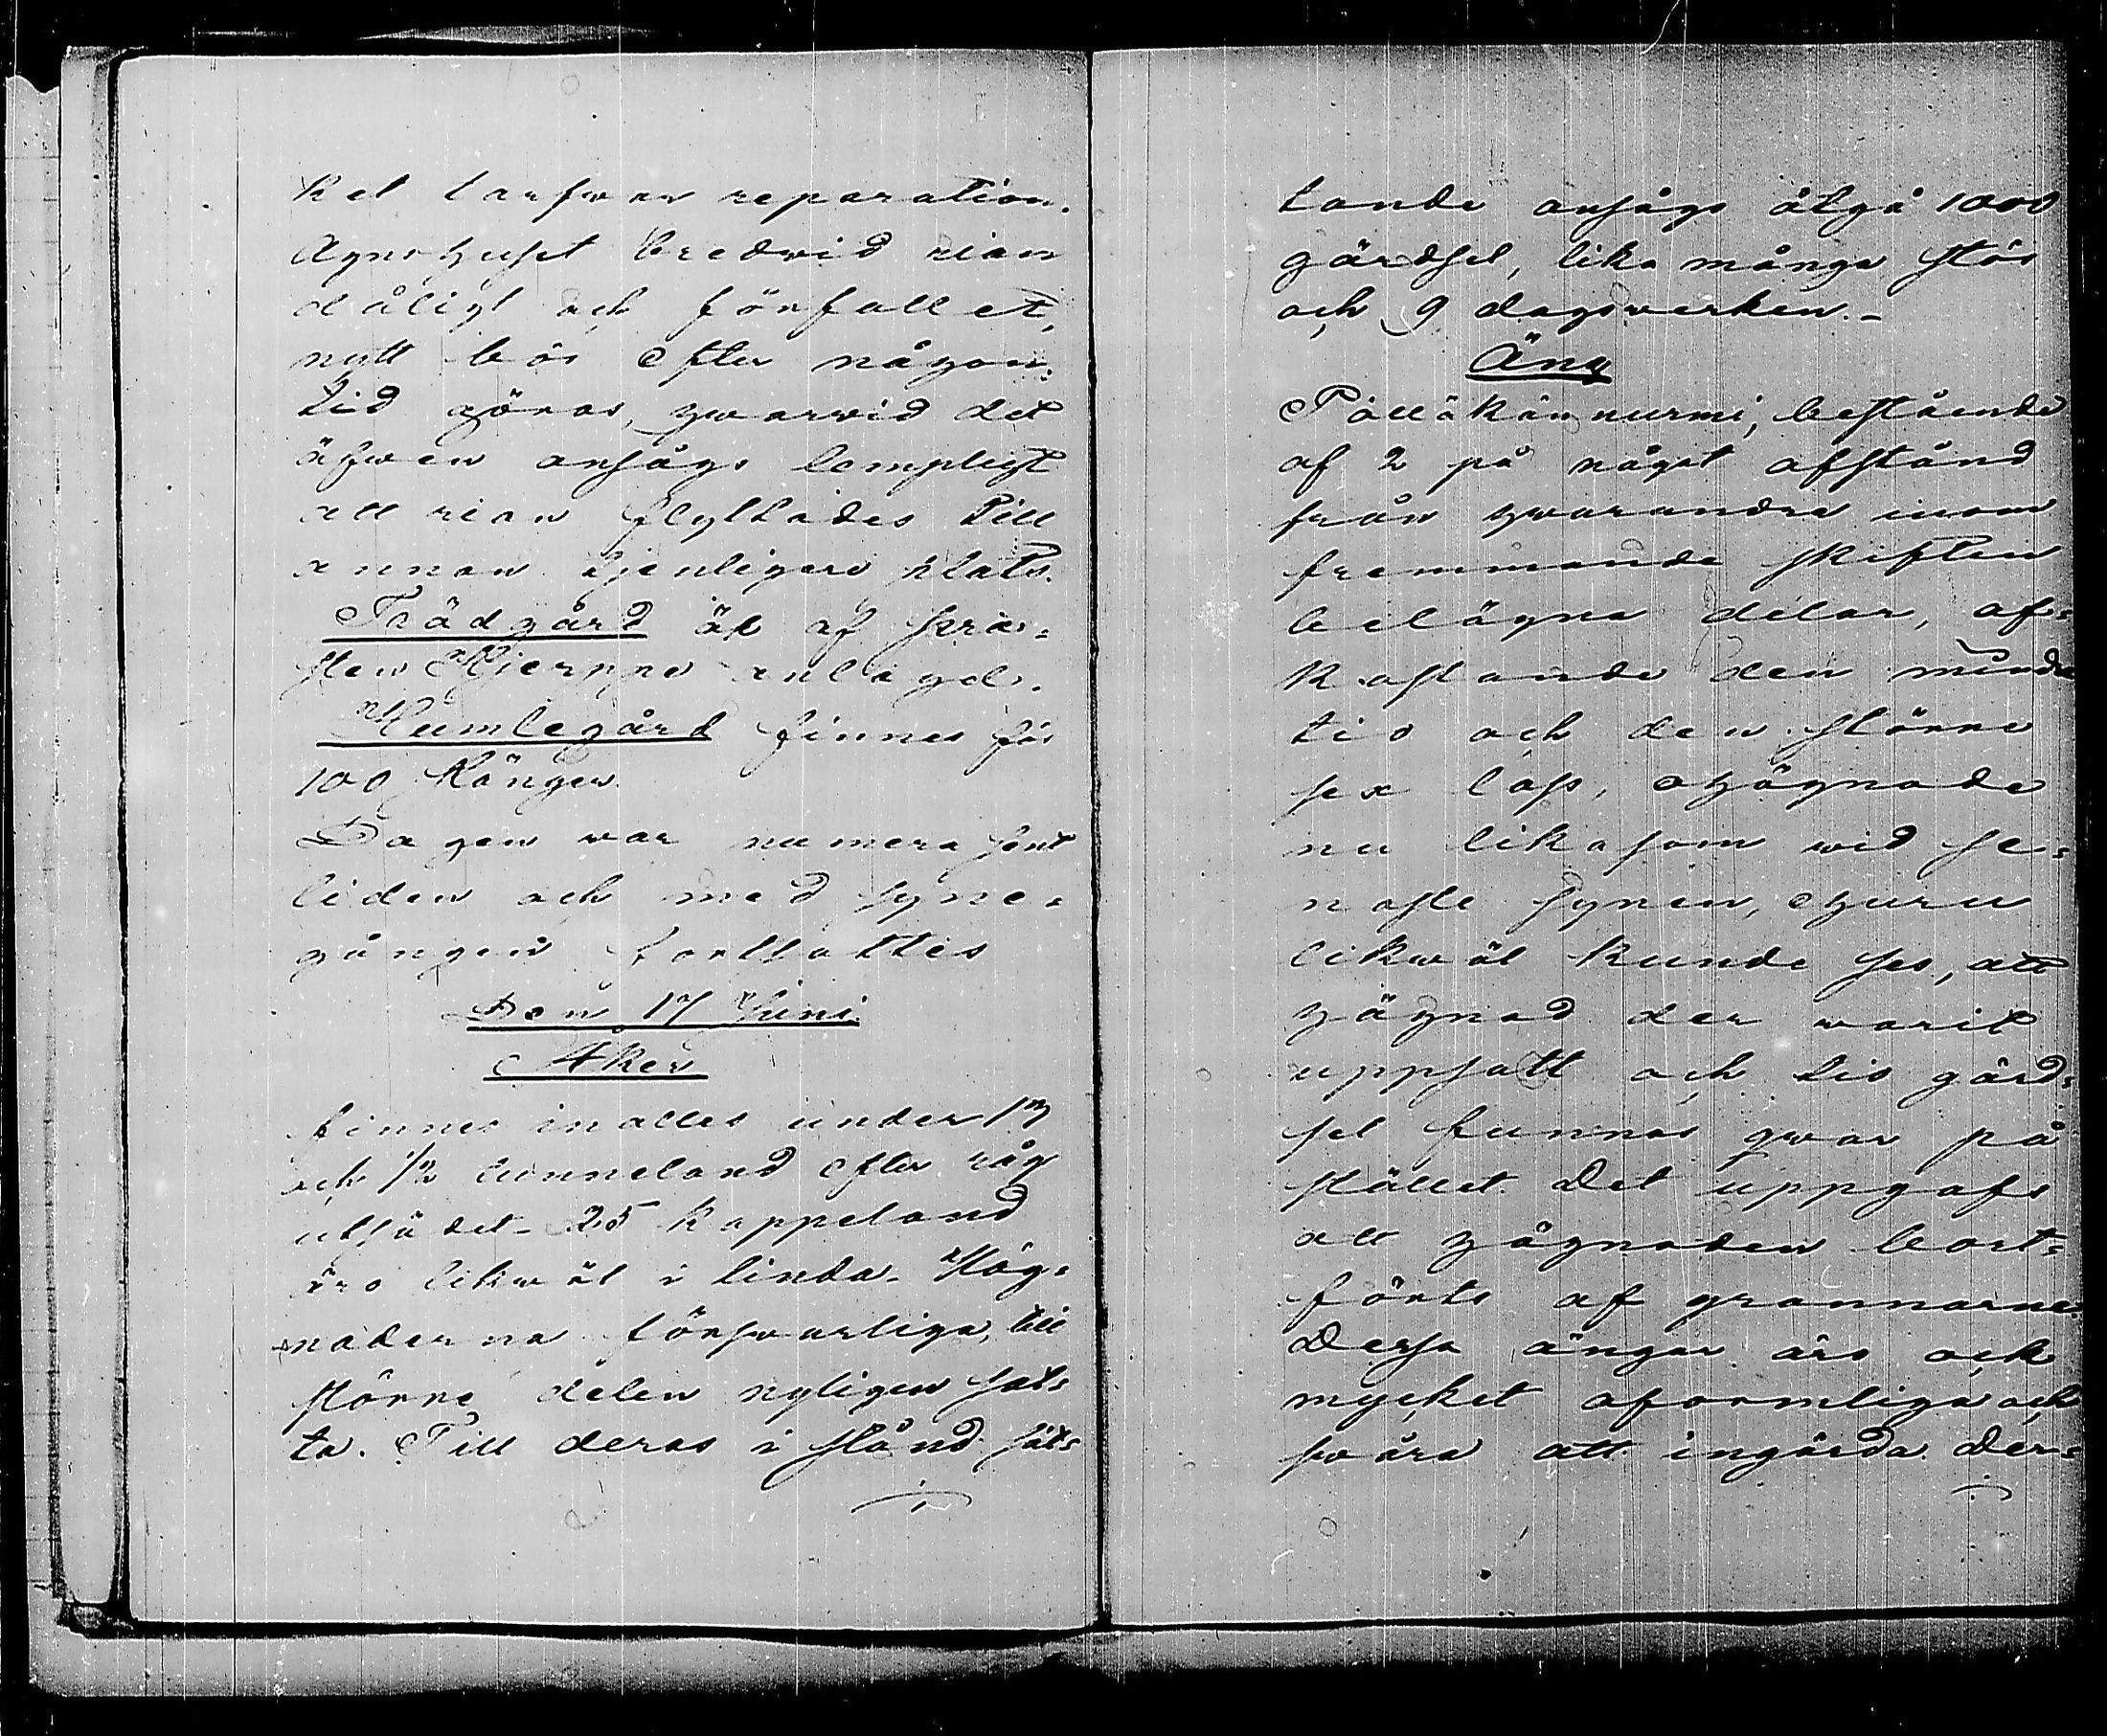 ket tarfwar reparation.
Agnehuset bredwid rian
dåligt och förfallet,
nytt bör efter någon
tid göras, hwarwid det
äfwen ansågs lämpligt
att rian flyttades till
annan tjenligare plats.
Trädgård är af prå=
sten Hjerppe anlagd.
Humlegård finnes för
100 stänger.
Dagen war numera sent
liden och med syne=
gången fortsattes
Den 17 Juni.
Åker
finnes inalles under 17
och 1/2 tunneland efter råg
utsädet. 25 kappeland
äro likwäl i linda. Häg=
naderna försvarliga, till
större delen nyligen sat=
ta. Till deras i stånd sät=
tande ansågs åtgå 1000
gärdsel, lika många stör
och 9 dagswerken.-
Äng
Pölläkännurmi, bestående
af 2 på något afstånd
från hwarandra inom
fremmande skiften
belägna delar, af=
kastande den mindre
tio och den större
sex lass, ohägnade
nu likasom wid se=
naste synen, ehuru
likwäl kunde ses, att
hägnad der warit
uppsatt och tio gärd=
sel funnos qwar på
stället. Det uppgafs
att hägnaden bort=
förts af grannarne.
Dessa ängar äro ock
mycket oformliga och
swåra att ingärda. Der=